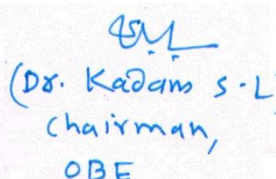 (Dr. Kadam S.L
Chairman,
OBE